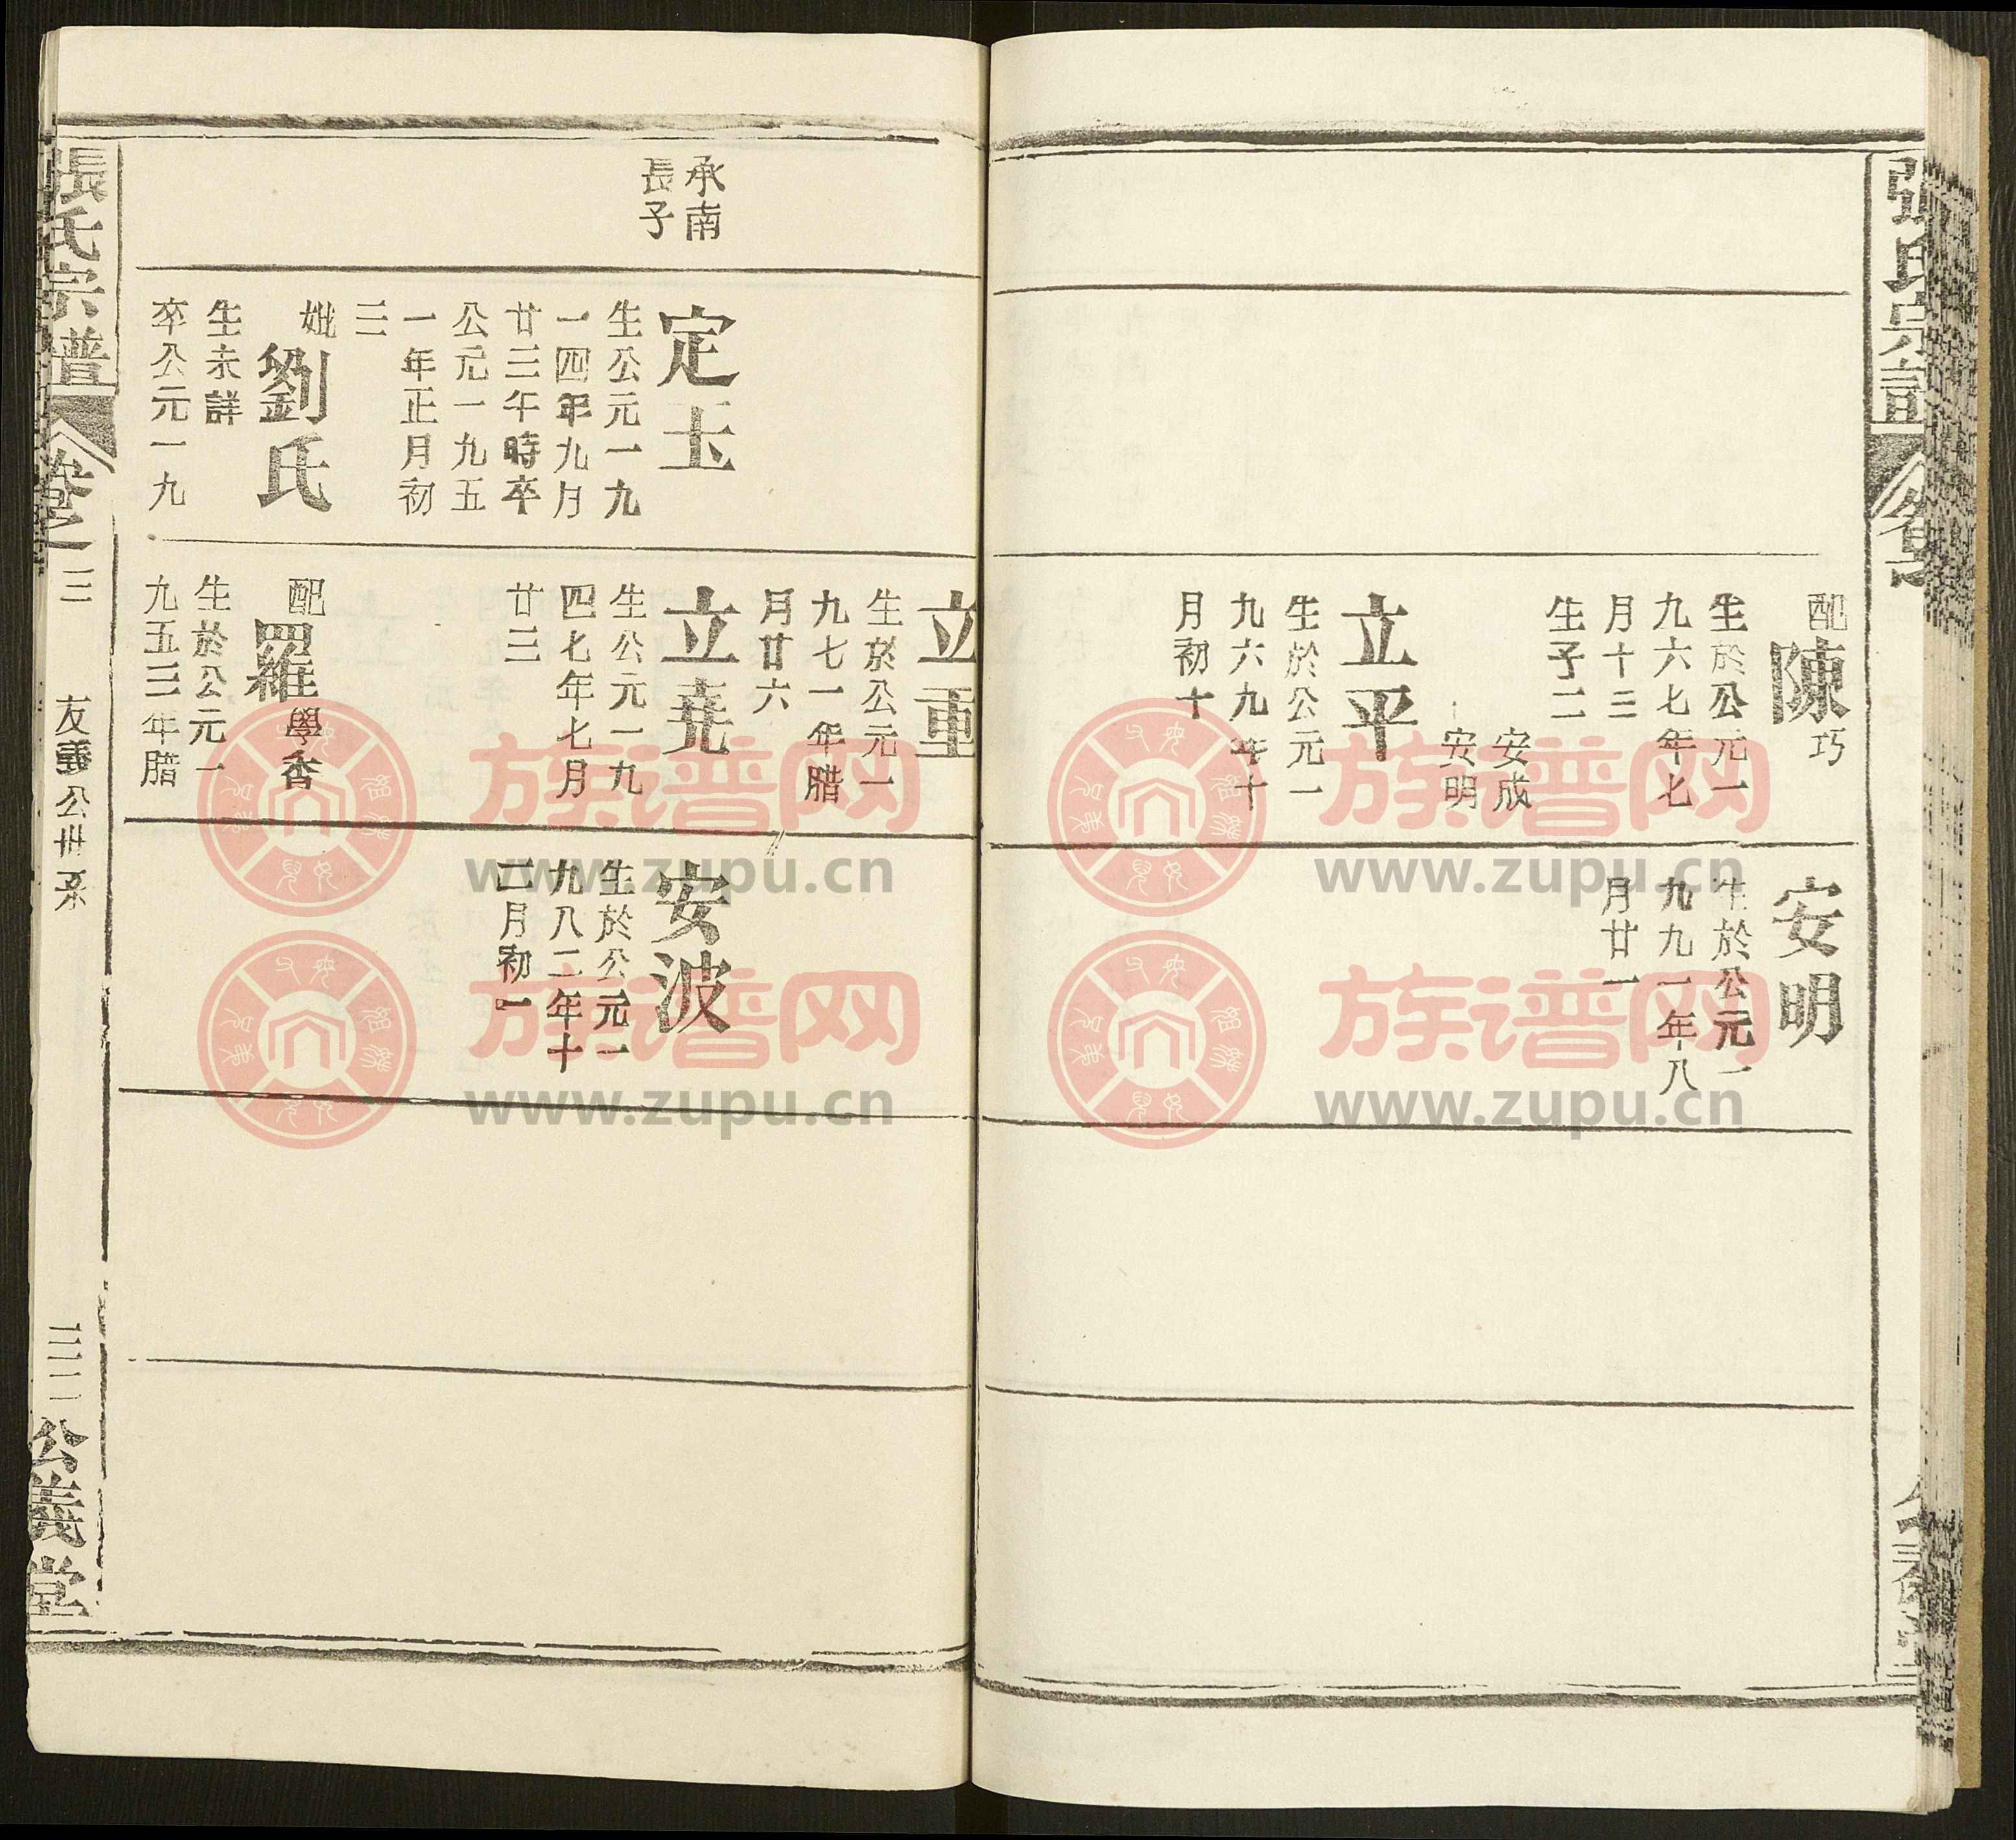 張氏宗
配陳巧
生於公元一
九六七年七
月十三
生子二
安成
安明
立平
生於公元一
九六九年十
月初十
安明
生於公元一
九九一年八
月廿一
承南
長子
定玉
生公元一九
一四年九月
廿三午時卒
公元一九五
一年正月初
三
妣劉氏
生未詳
卒公元一九
立重
生於公元一
九七一年腊
月廿六
立堯
生公元一九
四七年七月
廿三
配羅學香
生於公元一
九五三年腊
安波
生於公元一
九八二年十
二月初一
張氏宗譜
卷之三
友義公世系
公義堂
族谱网
www.zupu.cn
族谱网
www.zupu.cn
族谱网
www.zupu.cn
族谱网
www.zupu.cn